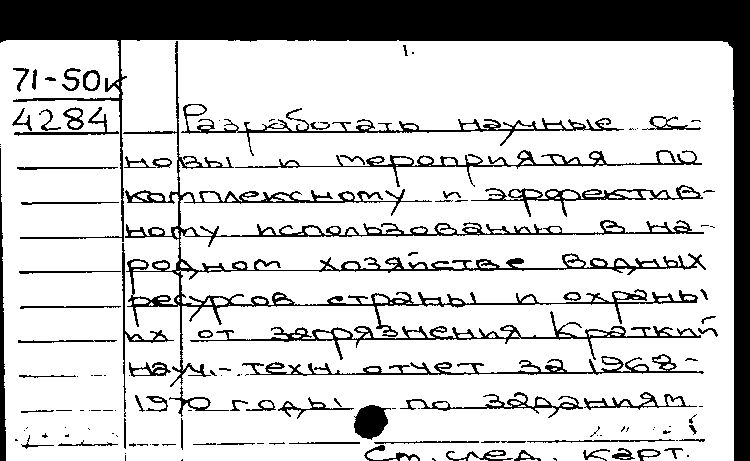 1.
71-50к
4284
Разработать научные ос-
новы и мероприятия по
комплексному и эффектив-
ному использованию в на-
родном хозяйстве водных
ресурсов страны и охраны
их от загрязнения Краткий
науч.-техн. отчет за 1968-
1970 годы по заданиям
См. след. карт.